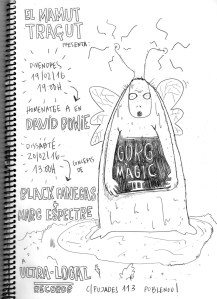 EL MAMUT
TRAÇUT
PRESENTA:
DIVENDRES
19/02/16
19:00H
HOMENATGE A EN
DAVID BOWIE
DISSABTE
20/02/16
13:00H
CONCERTS DE
GORG
MAGIC
III
BLACK PANERAS
+
MARC ESPECTRE
ULTRA-LOCAL
RECORDS
C/PUJADES 113 POBLENOU